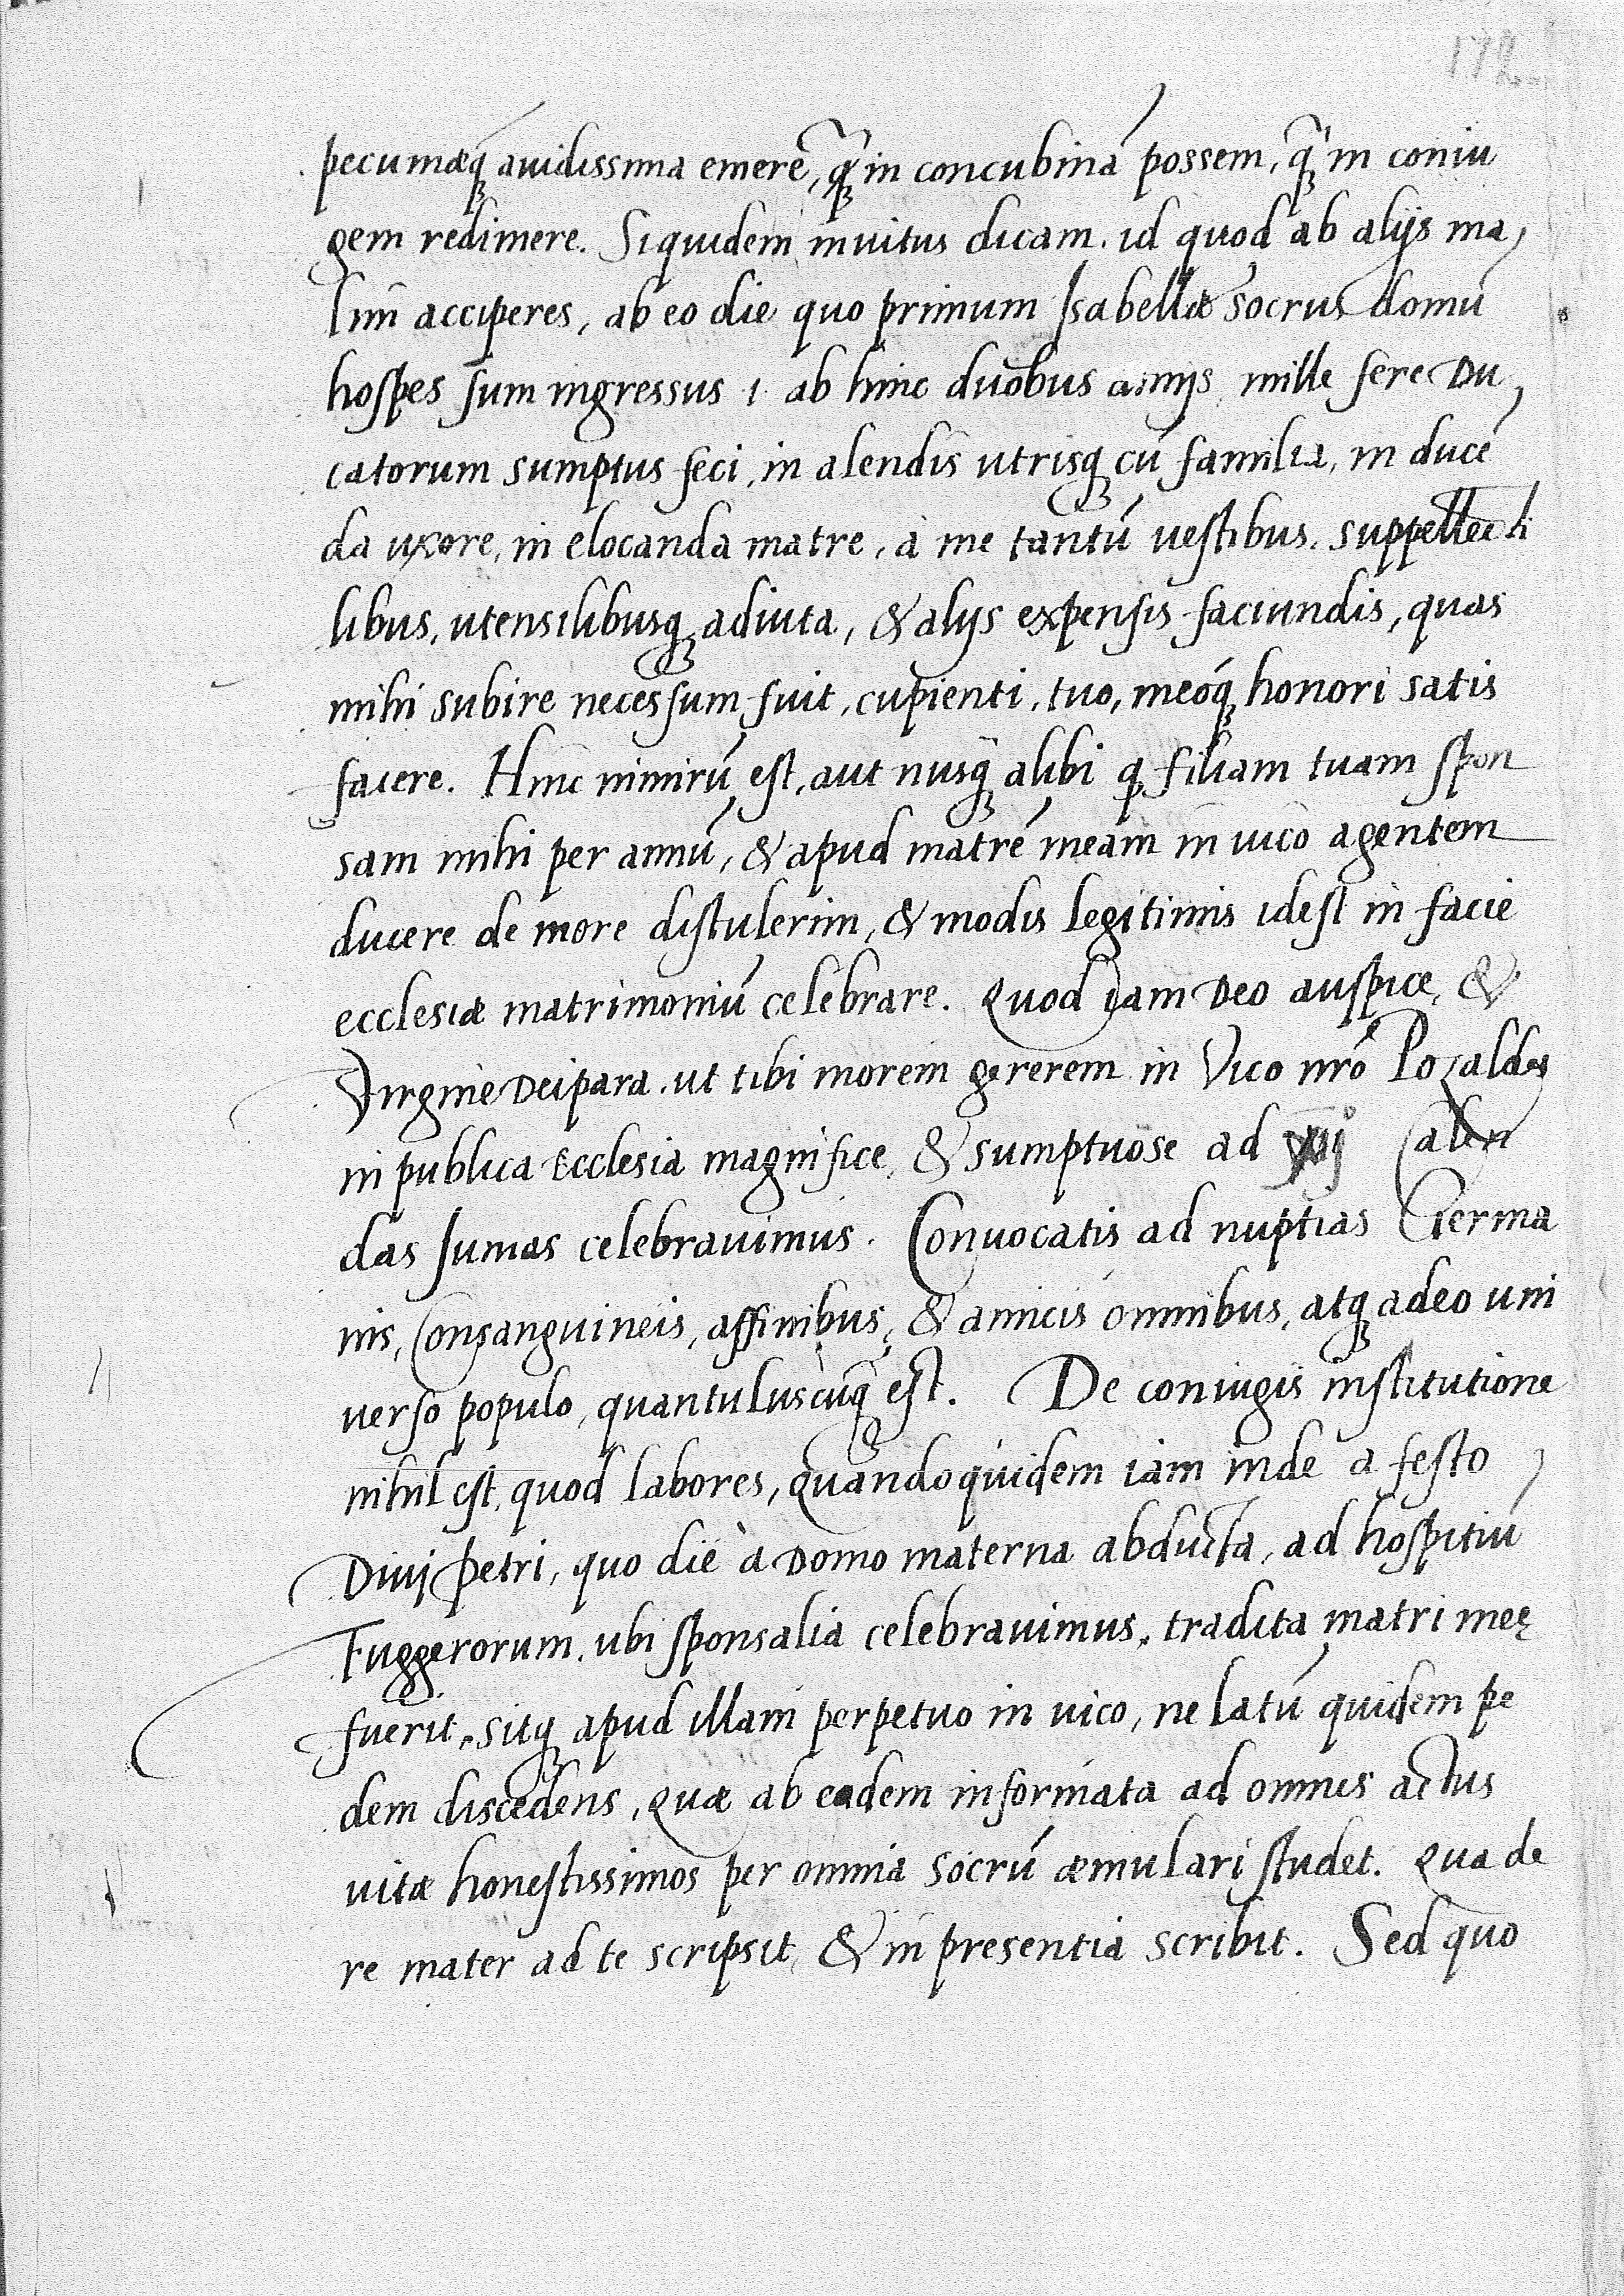 172
pecuniæq́ꝫ auidissima emerē, q̃ꝫ in concubinā possem, q̃ꝫ in coniu
gem redimere. Siquidem inuitus dicam, id quod ab alijs ma,
lim acciperes, ab eo die quo primum Isabellæ Socrus domū
hospes sum ingressus i. ab hinc duobus annijs, mille fere Du,
catorum sumptus feci, in alendis utrisqꝫ cū familia, in ducē
da uxore, in elocanda matre, à me tantū uestibus, suppellecti
libus, utensilibusqꝫ adiuta, & alijs expensis faciundis, quas
mihi subire necessum fuit, cupienti, tuo, meóqꝫ honori satis
facere. Hinc nimirū est, aut nusq̃ꝫ alibi q̢ filiam tuam spon
sam mihi per annū, & apud matrē meam in uico agentem
ducere de more distulerim, & modis legitimis idest in facie
ecclesiæ matrimoniū celebrare. Quod iam Deo auspice, &
Virgine Deipara, ut tibi morem gererem in Vico nr̄o Pozaldes
in publica Ecclesia magnifice, & sumptuose ad xijº Calen
das Iunias celebrauimus. Conuocatis ad nuptias Germa
nis, Consanguineis, affinibus, & amicis omnibus, atqꝫ adeo uni
uerso populo, quantuluscūqꝫ est. De coniugis institutione
nihil est, quod labores, quandoquidem iam inde a festo
Diuj Petri, quo die à Domo materna abducta, ad hospitiū
Fuggerorum, ubi sponsalia celebrauimus, tradita matri meę
fuerit, sitqꝫ apud illam perpetuo in uico, ne latū quidem pe
dem discedens, quæ ab eadem informata ad omnes actus
uitæ honestissimos per omnia socrū æmulari studet. Qua de
re mater ad te scripsit, & in presentia scribit. Sed quo